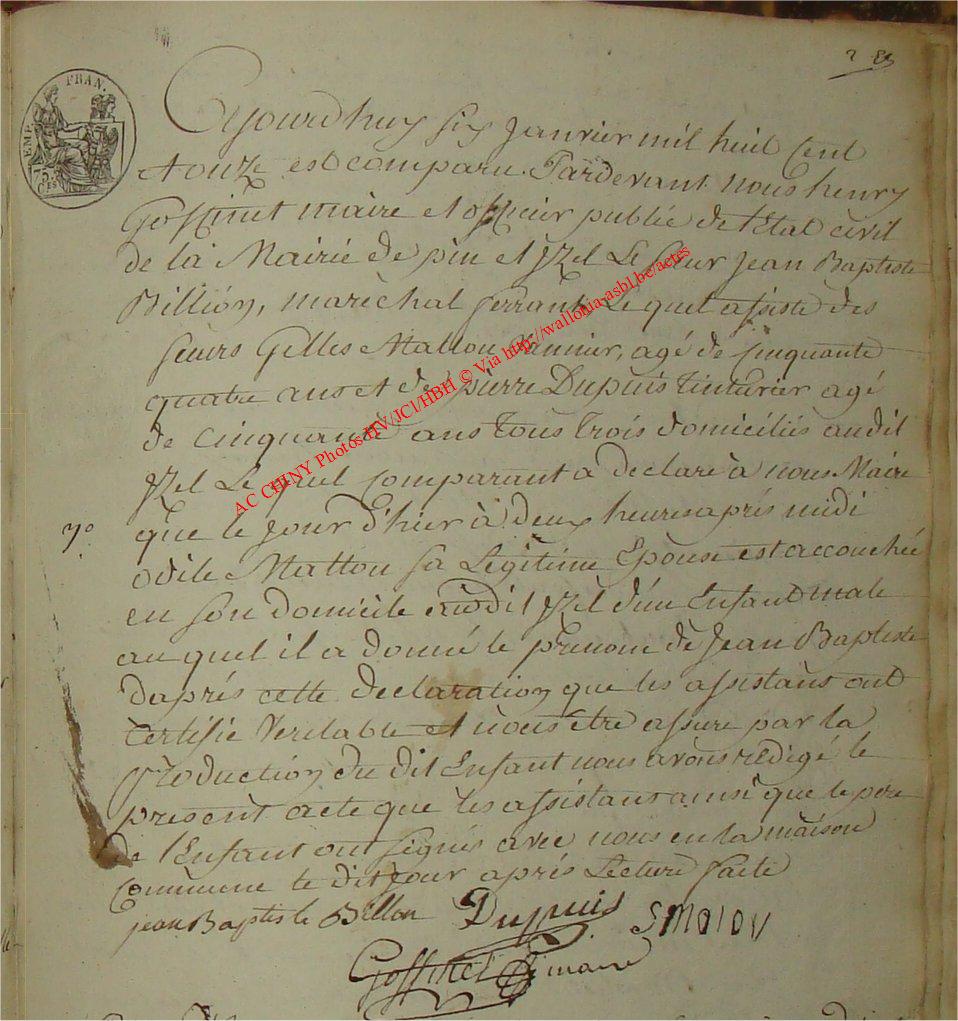 2
EMP. FRAN.
75.
CES
Ajourdhuy six Janvier mil huit Cent
douze est comparu Pardevant nous henry
Goffinet maire et officier publié de l'Etat civil
de la Mairié de pin et Jzel Le sieur Jean Baptiste
Billion, maréchal ferrant Le quel assisté des
sieurs Gelles Mallou Vannier, agé de cinquante
quatre ans et de pierre Dupuis Tinturier agé
de cinquante ans tous trois domiciliés audit
Jzel Le quel comparant a declaré à nous Maire
que le jour d'hier à deux heures aprés midi
odile Mattou sa Legitime Epouse est accouchée
7º
en son domicile audit Jzel d'un Enfant male
au quel il a donné le prenom de Jean Baptiste
daprés cette declaration que les assistans ont
certifié Veritable et nous être assuré par la
production du dit Enfant nous avons rédigé le
present acte que les assistans ainsi que le pére
de l'Enfant ont signés avec nous en la maison
Commune le dit jour aprés Lecture faite
jean Baptiste Billon Dupuis S Malou
Goffinet maire
AC CHINY Photos HV/JCl/HBH © Via http://wallonia-asbl.be/actes